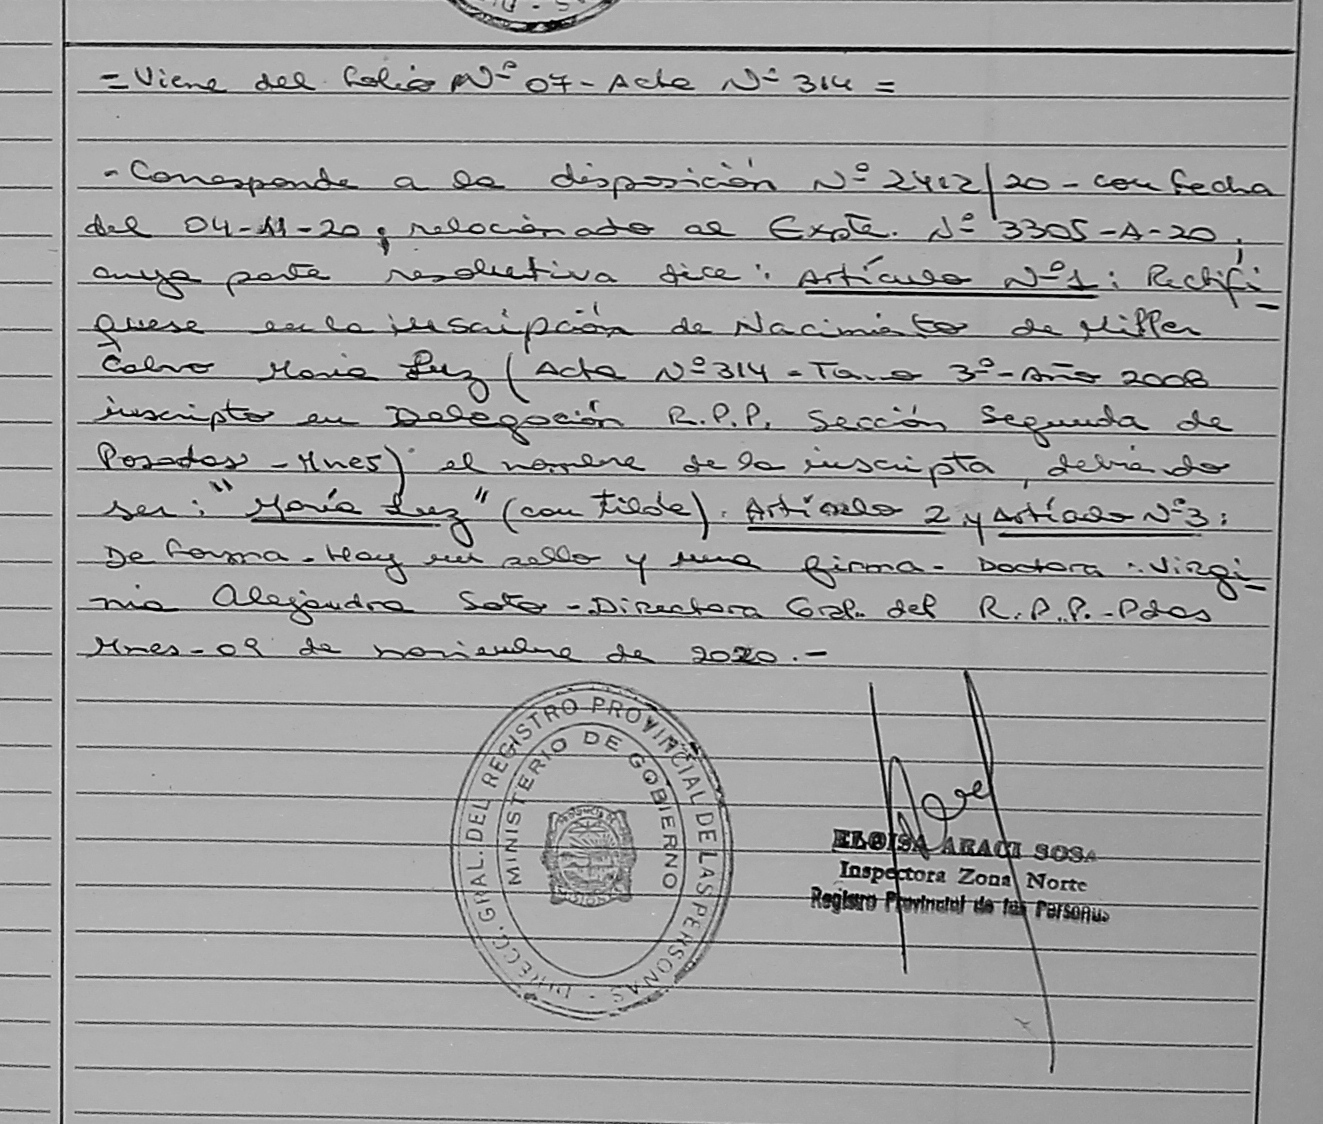 = Viene del Folio Nº 07 - Acta Nº 314 =
- Corresponde a la disposición Nº 2412/20 - con fecha
del 04-11-20, relacionado al Expte. Nº 3305-A-20,
cuya parte resolutiva dice: Artículo Nº1: Rectifi-
quese en la inscripción de Nacimiento de Miller
Calvo Maria Luz (Acta Nº 314 - Tomo 3º - Año 2008
inscripto en Delegación R.P.P. Sección Segunda de
Posadas - Mnes) el nombre de la inscripta, debiendo
ser: "María Luz" (con tilde). Artículo 2 y Artículo Nº3:
De forma. Hay un sello y una firma - Doctora: Virgi-
nia Alejandra Soto - Directora Gral. del R.P.P. - Pdas
Mnes - 09 de noviembre de 2020. -
DIRECC. GRAL. DEL REGISTRO PROVINCIAL DE LAS PERSONAS
MINISTERIO DE GOBIERNO
ELOISA ARACI SOSA
Inspectora Zona Norte
Registro Provincial de las Personas